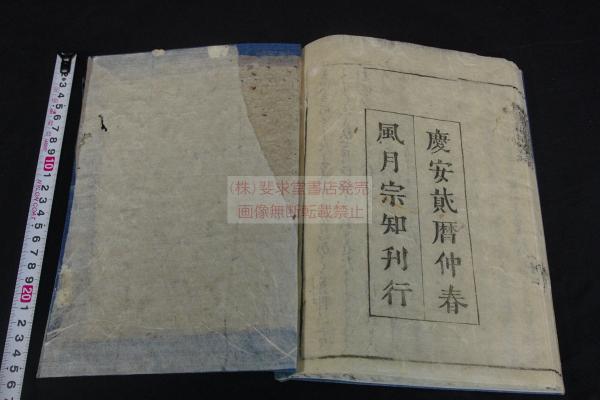 慶安貳暦仲春
風月宗知刊行
(株)斐求堂書店発売
画像無断転載禁止
3 4 5 6 7 8 9 10 1 2 3 4 5 6 7 8 9 20 1 2 3 4 5 6